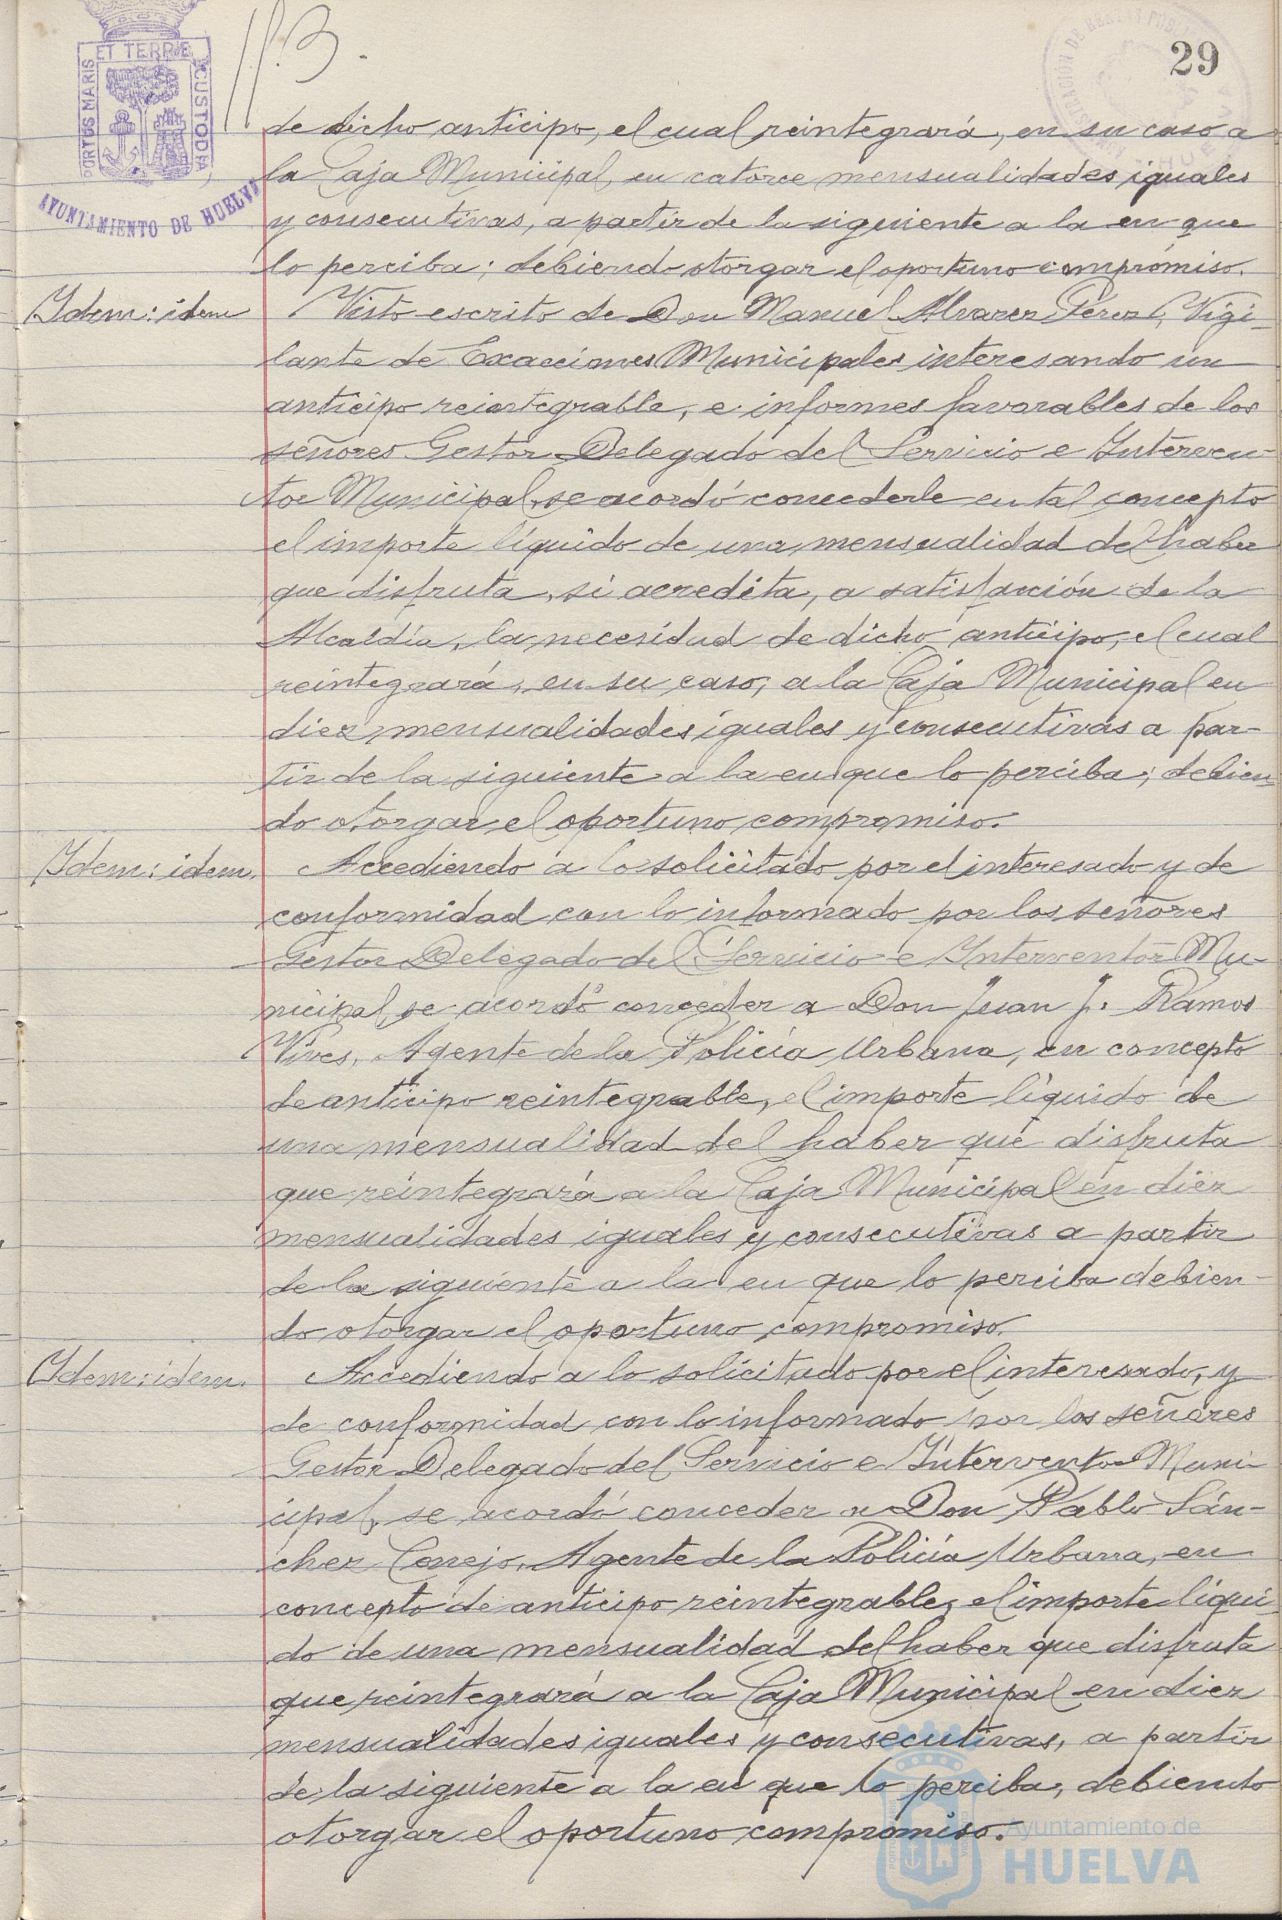 PORTUS MARIS ET TERRE CUSTODIA
AYUNTAMIENTO DE HUELVA
29
de dicho anticipo, el cual reintegrará, en su caso a
la Caja Municipal, en catorce mensualidades iguales
y consecutivas, a partir de la siguiente a la en que
lo perciba; debiendo otorgar el oportuno compromiso.
Idem: idem
Visto escrito de Don Manuel Alvarez Pérez, Vigi-
lante de Exacciones Municipales interesando un
anticipo reintegrable, e informes favorables de los
señores Gestor Delegado del Servicio e Interven-
tor Municipal, se acordó concederle en tal concepto
el importe líquido de una mensualidad del haber
que disfruta, si acredita, a satisfacción de la
Alcaldía, la necesidad de dicho anticipo, el cual
reintegrará, en su caso, a la Caja Municipal en
diez mensualidades iguales y consecutivas a par-
tir de la siguiente a la en que lo perciba; debien-
do otorgar el oportuno compromiso.
Idem: idem.
Accediendo a lo solicitado por el interesado y de
conformidad con lo informado por los señores
Gestor Delegado del Servicio e Interventor Mu-
nicipal, se acordó conceder a Don Juan J. Ramos
Vives, Agente de la Policía Urbana, en concepto
de anticipo reintegrable, el importe líquido de
una mensualidad del haber que disfruta
que reintegrará a la Caja Municipal en diez
mensualidades iguales y consecutivas a partir
de la siguiente a la en que lo perciba debien-
do otorgar el oportuno compromiso.
Idem: idem.
Accediendo a lo solicitado por el interesado, y
de conformidad con lo informado por los señores
Gestor Delegado del Servicio e Interventor Muni-
cipal, se acordó conceder a Don Pablo Sán-
chez Conejo, Agente de la Policía Urbana, en
concepto de anticipo reintegrable, el importe líqui-
do de una mensualidad del haber que disfruta
que reintegrará a la Caja Municipal en diez
mensualidades iguales y consecutivas, a partir
de la siguiente a la en que lo perciba, debiendo
otorgar el oportuno compromiso.
Ayuntamiento de
HUELVA